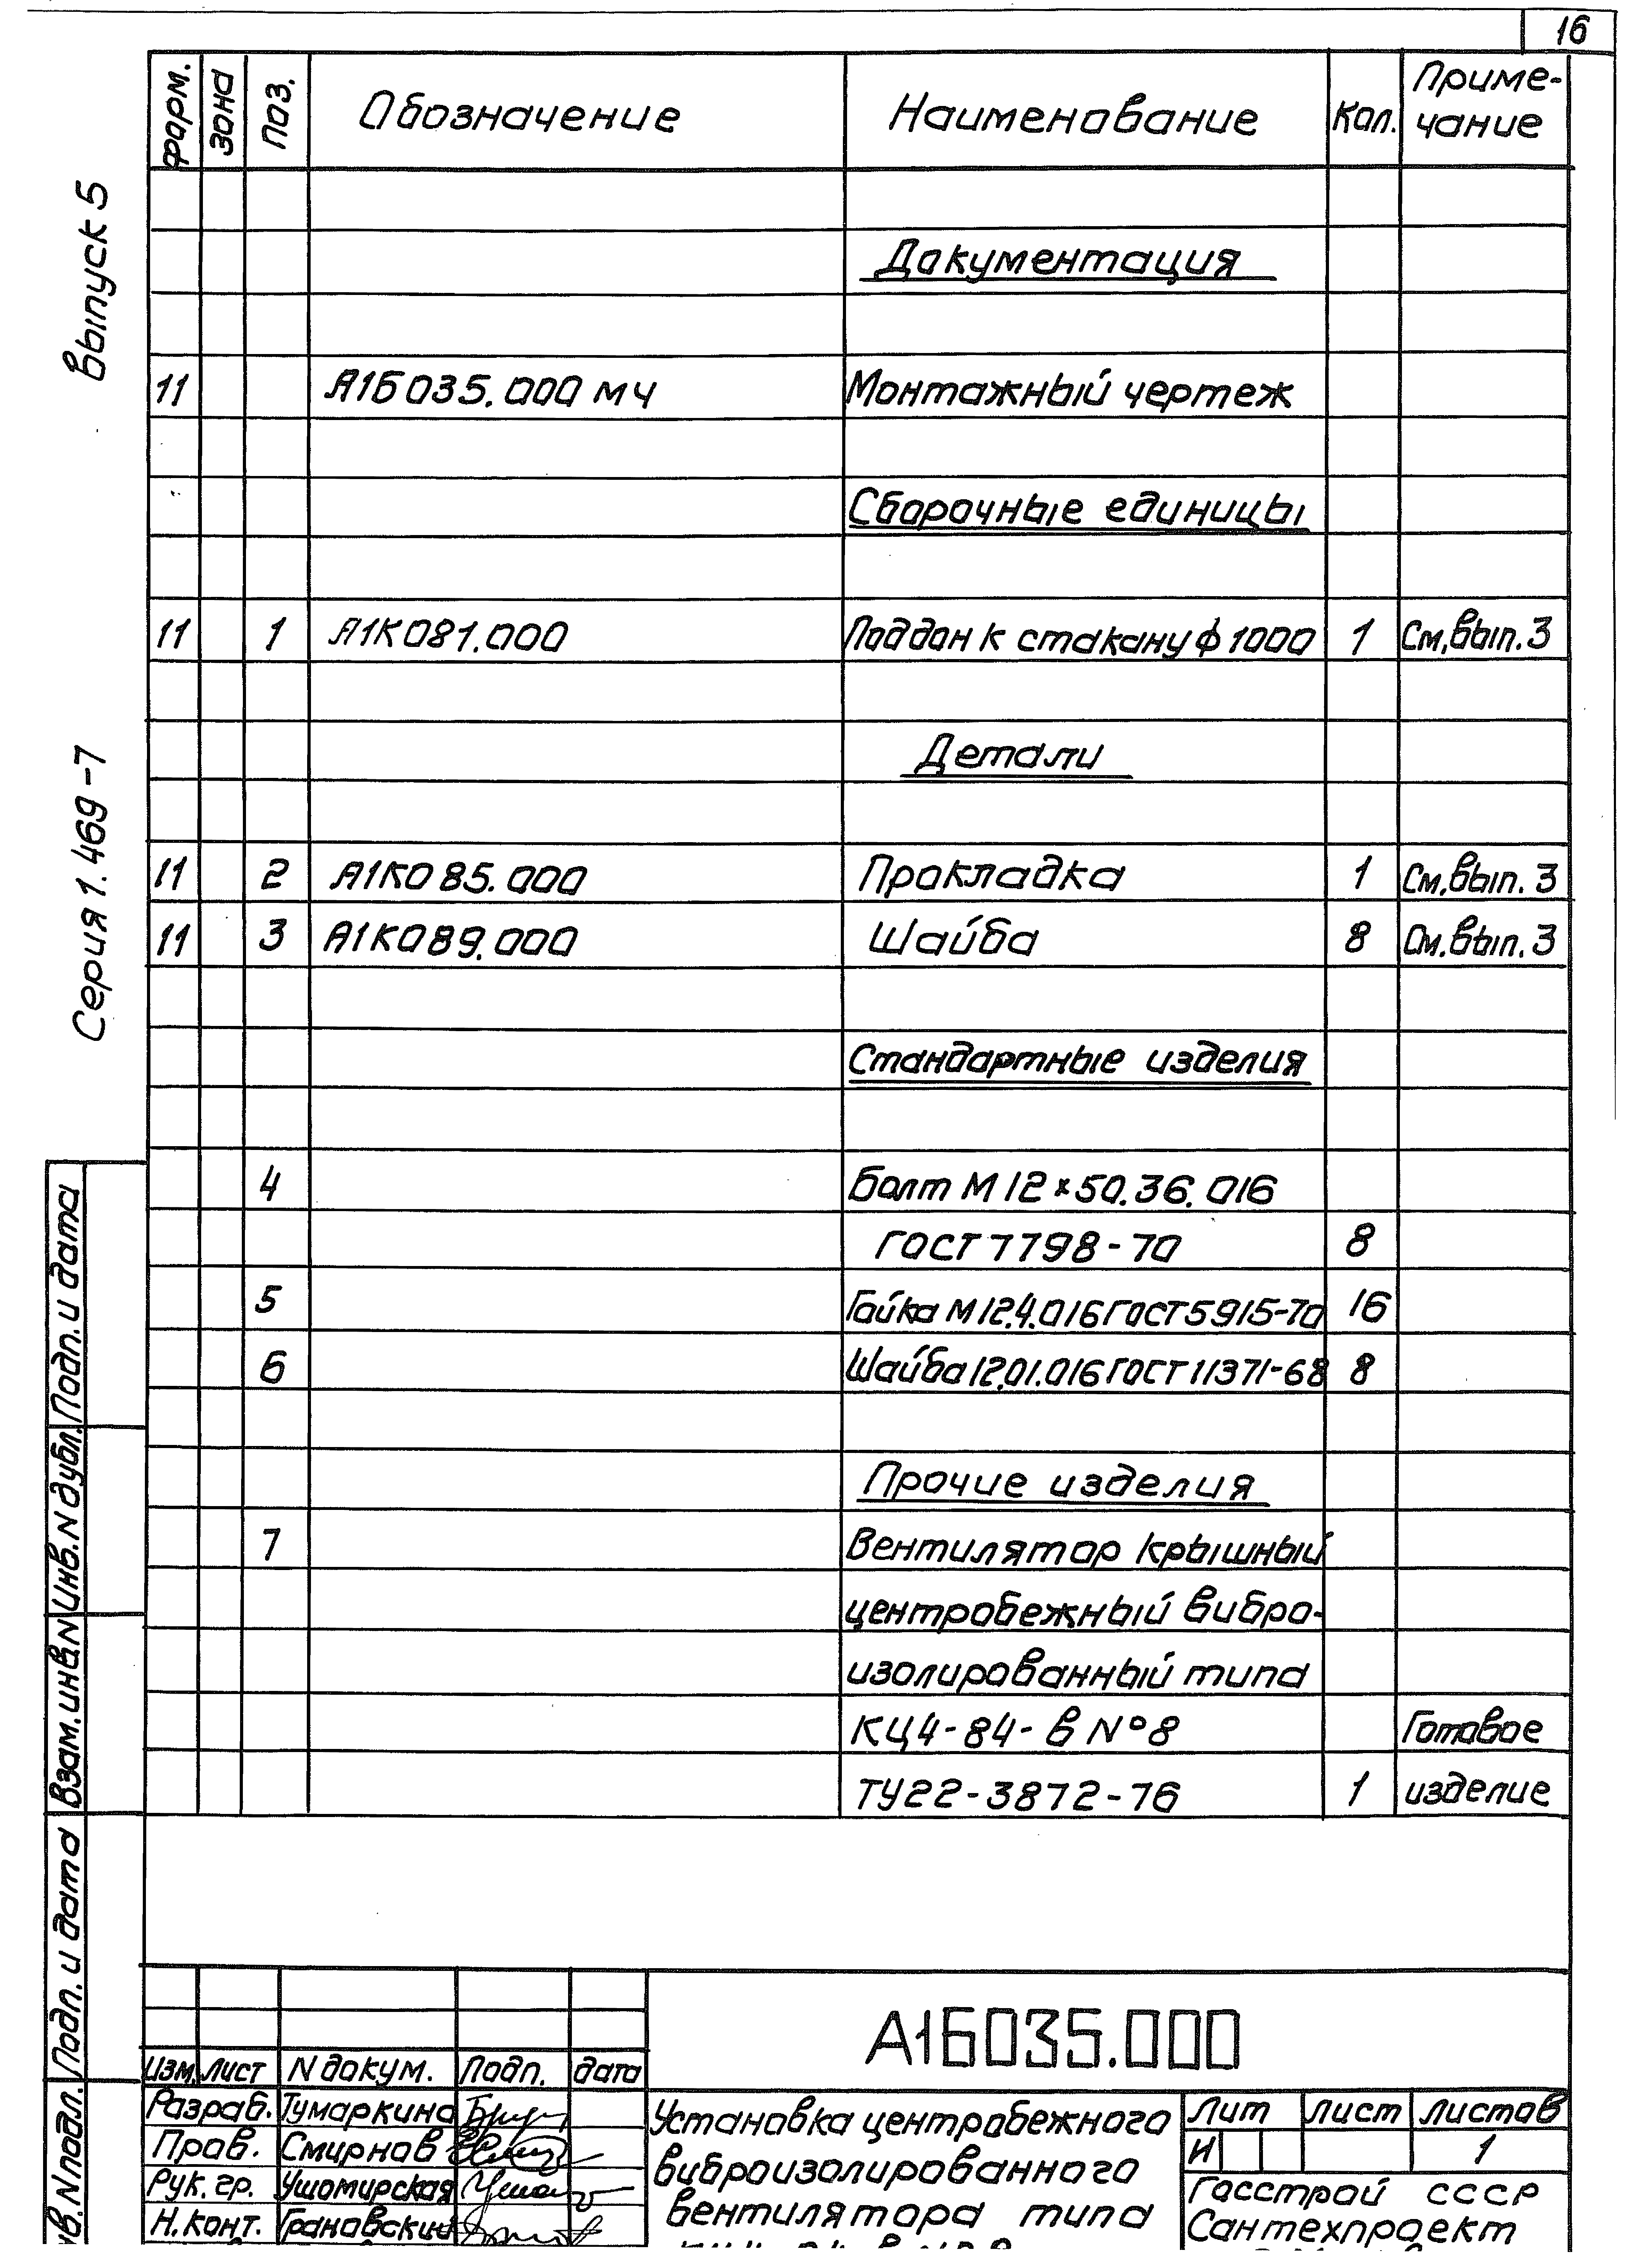 16
Форм.
Зона
Поз.
Обозначение
Наименование
Кол.
Приме-
чание
Выпуск 5
Документация
11 А1Б035.000 МЧ Монтажный чертеж
Сборочные единицы
11 1 А1К081.000 Поддон к стакану ф 1000 1 См.вып.3
Детали
Серия 1.469-7
11 2 А1К085.000 Прокладка 1 См.вып.3
11 3 А1К089.000 Шайба 8 См.вып.3
Стандартные изделия
4 Болт М12×50.36.016
ГОСТ 7798-70 8
5 Гайка М12.4.016 ГОСТ 5915-70 16
6 Шайба 12.01.016 ГОСТ 11371-68 8
Прочие изделия
7 Вентилятор крышный
центробежный вибро-
изолированный типа
КЦ4-84-в №8 Готовое
ТУ22-3872-76 1 изделие
Подп. и дата
Инв. N дубл.
Взам. инв. N
Подп. и дата
N подл.
А1Б035.000
Изм. Лист N докум. Подп. Дата
Разраб. Тумаркина
Пров. Смирнов
Рук. гр. Ушомирская
Н. конт. Грановский
Установка центробежного
виброизолированного
вентилятора типа
Лит Лист Листов
И 1
Госстрой СССР
Сантехпроект